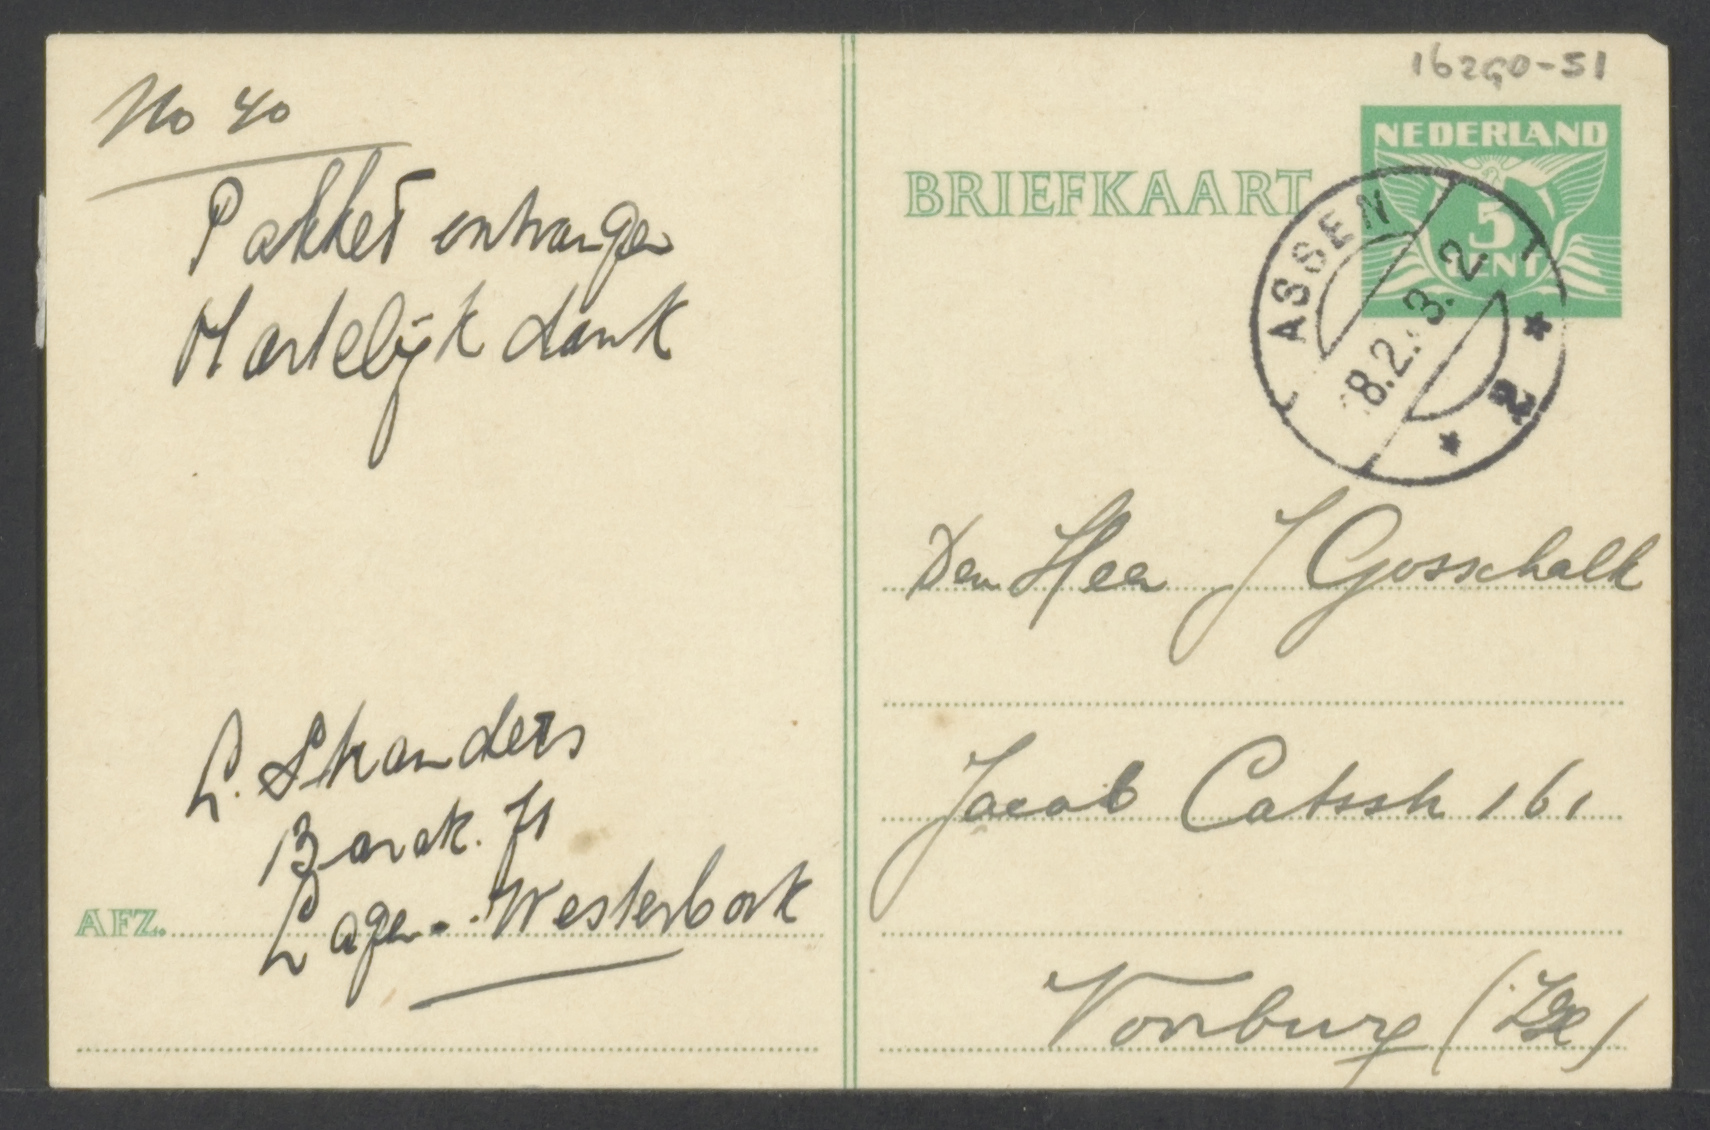 No 40
Pakket ontvangen
Hartelijk dank
L. Stranders
Barak. 71
AFZ.
Lager - Westerbork
16290-51
NEDERLAND
5
CENT
BRIEFKAART
ASSEN
8.2.43.2
2
Den Heer J Gosschalk
Jacob Catsstr 161
Voorburg (ZH)